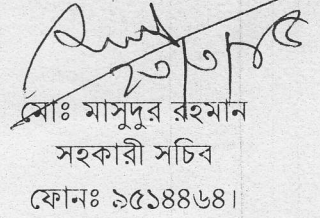 মোঃ মাসুদুর রহমান
সহকারী সচিব
ফোনঃ ৯৫১৪৪৬৪।